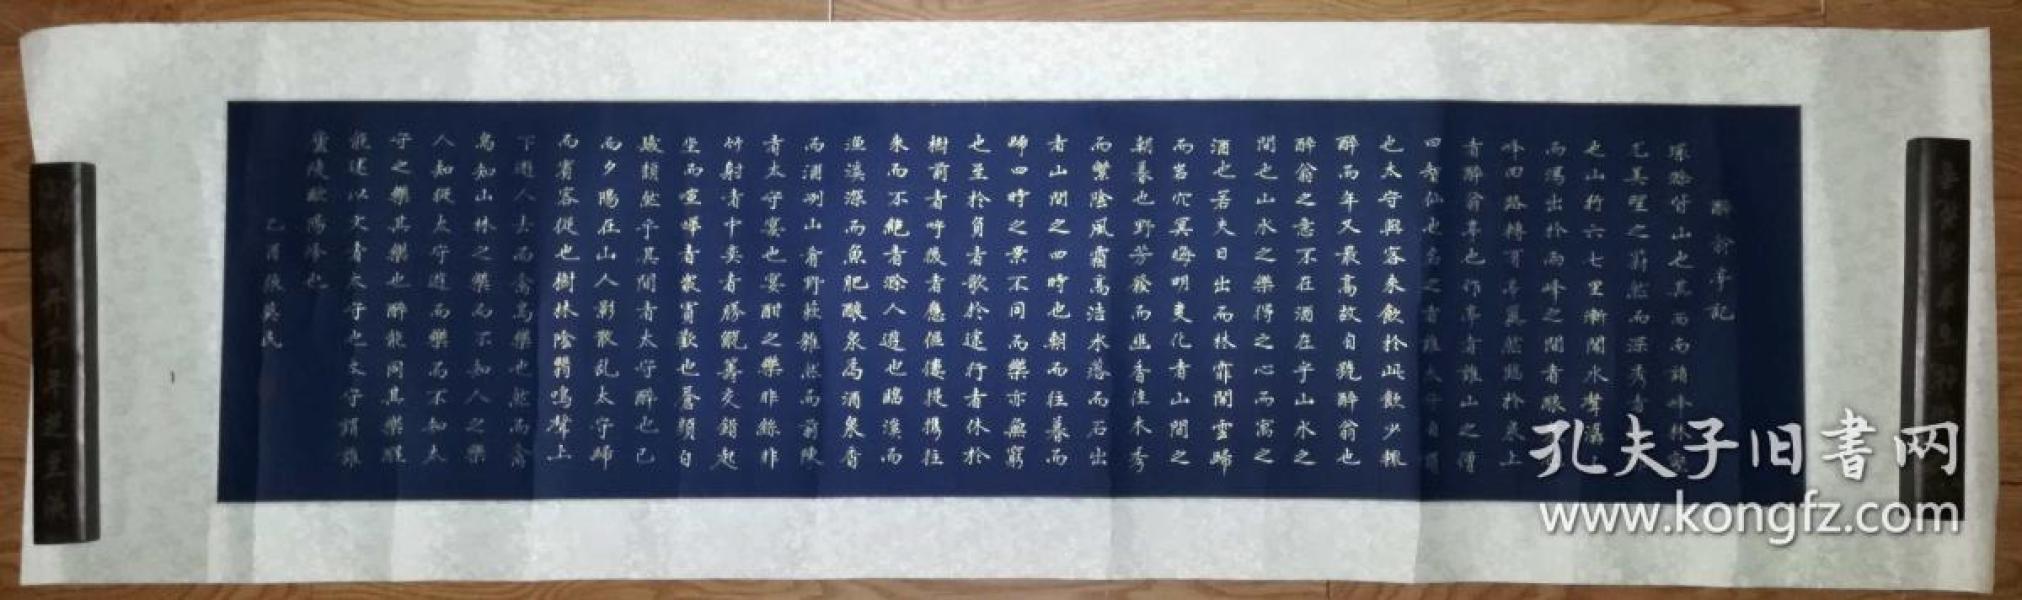 醉翁亭記
環滁皆山也其西南諸峰林壑
尤美望之蔚然而深秀者
也山行六七里漸聞水聲潺
而瀉出於兩峰之間者釀
峰回路轉有亭翼然臨於泉上
者醉翁亭也作亭者誰山之僧
曰智仙也名之者誰太守自謂
也太守與客來飲於此飲少輒
醉而年又最高故自號醉翁也
醉翁之意不在酒在乎山水之
間也山水之樂得之心而寓之
酒也若夫日出而林霏開雲歸
而岩穴冥晦明變化者山間之
朝暮也野芳發而幽香佳木秀
而繁陰風霜高潔水落而石出
者山間之四時也朝而往暮而
歸四時之景不同而樂亦無窮
也至於負者歌於途行者休於
樹前者呼後者應傴僂提攜往
來而不絕者滁人遊也臨溪而
漁溪深而魚肥釀泉為酒泉香
而酒冽山肴野蔌雜然而前陳
者太守宴也宴酣之樂非絲非
竹射者中奕者勝觥籌交錯起
坐而喧嘩者眾賓歡也蒼顏白
髮頹然乎其間者太守醉也已
而夕陽在山人影散乱太守歸
而賓客從也樹林陰翳鳴聲上
下遊人去而禽鳥樂也然而禽
鳥知山林之樂而不知人之樂
人知從太守遊而樂而不知太
守之樂其樂也醉能同其樂醒
能述以文者太守也太守謂誰
廬陵歐陽修也
乙酉張民
孔夫子旧書网
www.kongfz.com